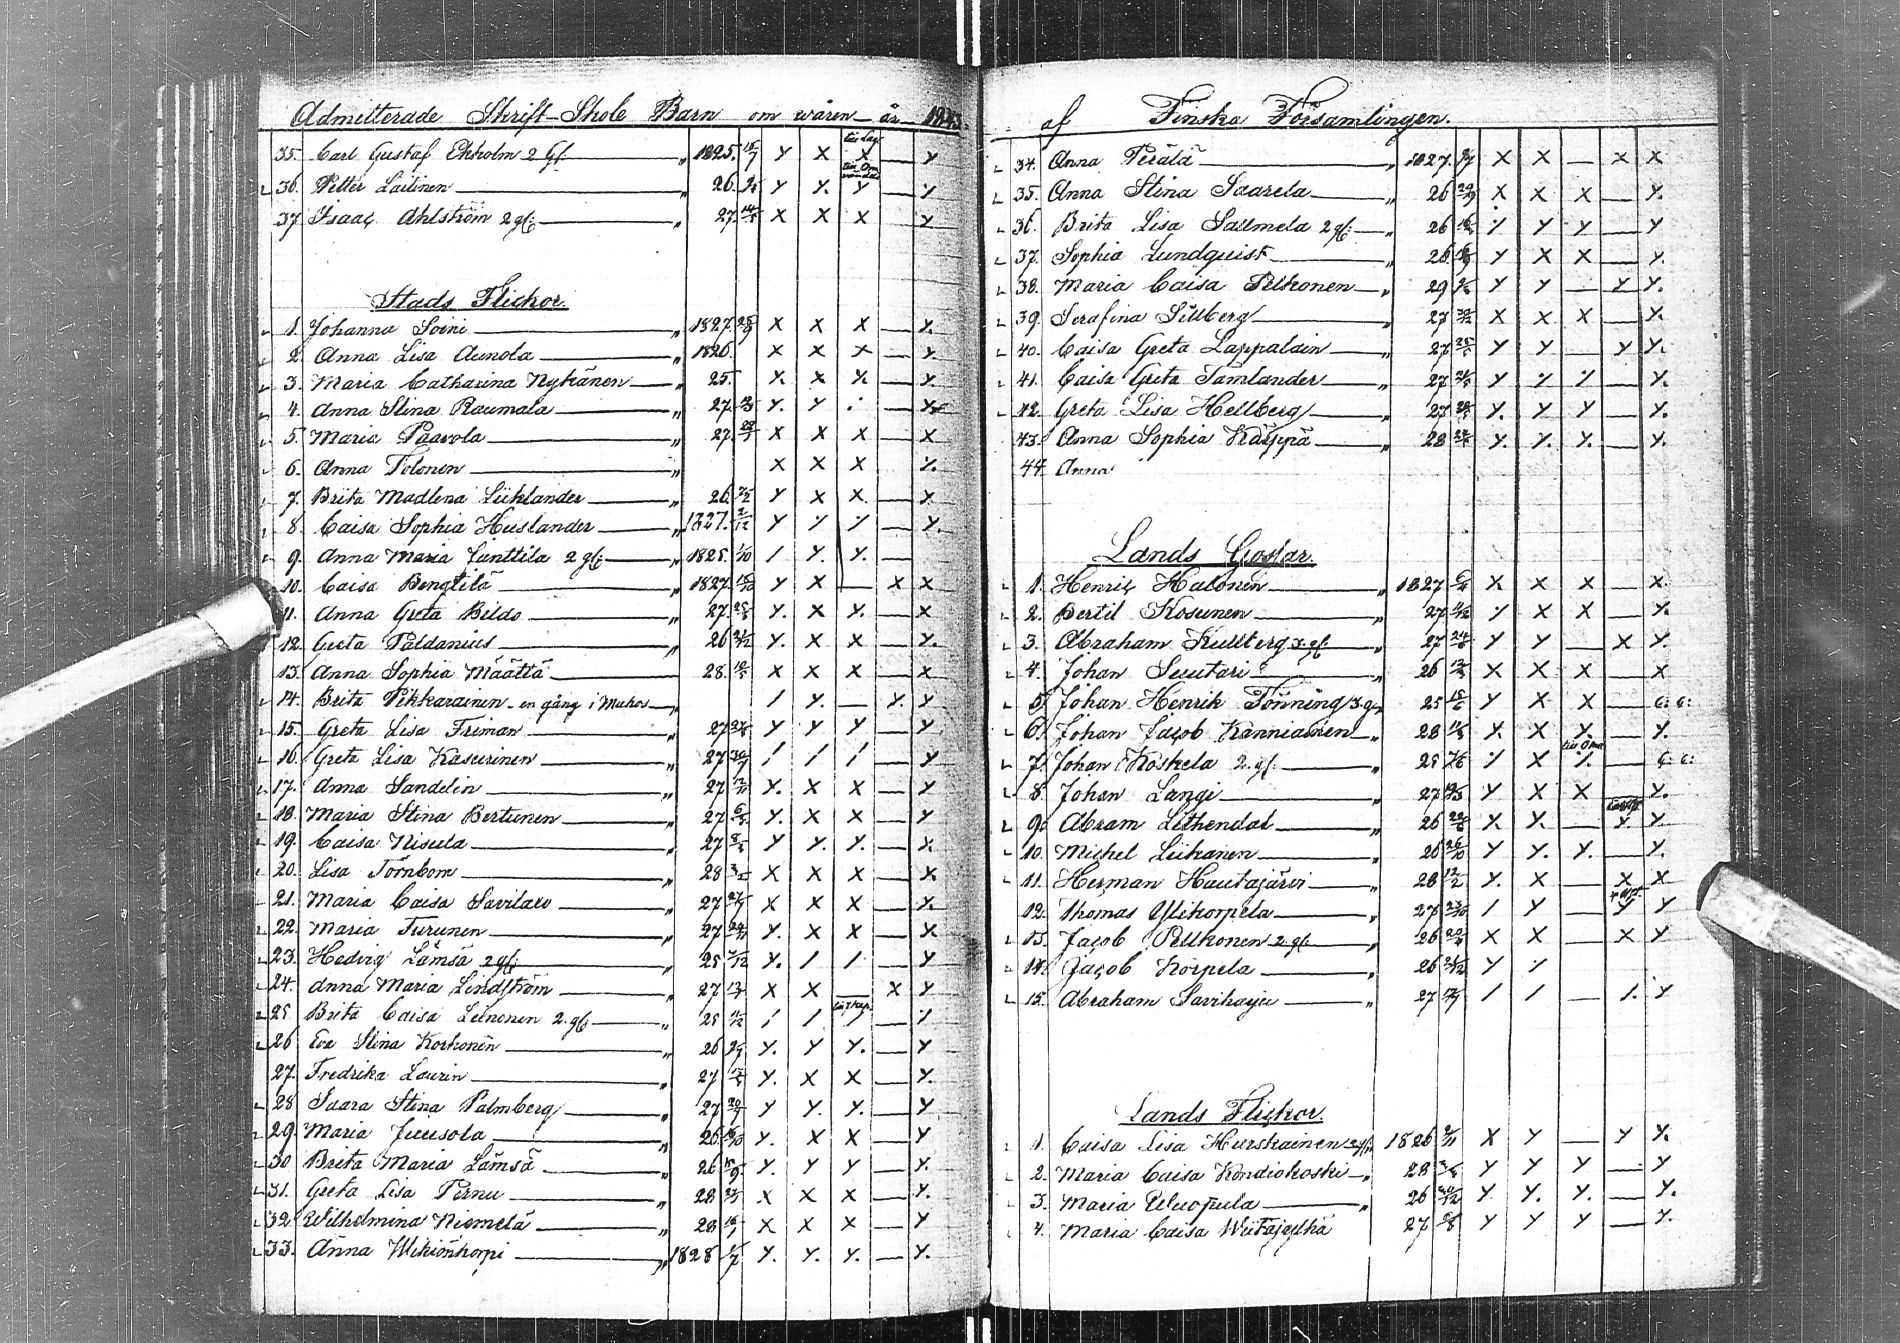 Admitterade Skrift-Skole Barn om wåren år 1843.
35. Carl Gustaf Ekholm 2 gf. " 1825. 15/7 Y X X — Y
36. Petter Laitinen " 26. Y Y. Y — Y
37 Isaac Ahlström 2 gf. " 27. X X X Y
Stads Flickor.
1. Johanna Soini " 1827. 25/9 X X X — Y.
2. Anna Lisa Aunola " 1826. X X X — Y.
3. Maria Catharina Nykänen " 25. Y. X Y. — Y.
4. Anna Stina Raumala " 27. Y. Y —
5. Maria Paavola " 27. X X X — X
6. Anna Tolonen " X X X — Y.
7. Brita Madlena Liiklander " 26. Y X X — Y
8. Caisa Sophia Huslander " 1827. 2/12 Y Y Y — Y.
9. Anna Maria Janttila 2 gf. " 1825. 1/10 / Y. Y. —
10. Caisa Bengtilä 1827. 15/10 Y X — X X
11. Anna Greta Bildo " 27. Y. X Y. — X
12. Greta Paldanius " 26 Y. X X — Y.
13. Anna Sophia Määttä " 28. X X X — X
14. Brita Pikkarainen - en gång i Muhos " / Y. — Y. Y
15. Greta Lisa Friman " 27 Y Y Y — Y
16. Greta Lisa Kaseirinen " 27 30/7 / / / — Y
17. Anna Sandelin " 27 Y. X X — Y
18. Maria Stina Bertunen " 27 Y. X X — Y
19. Caisa Nisula " 27 Y Y. Y. — Y.
20. Lisa Törnbom " 28 X X X — X
21. Maria Caisa Savilaxo " 27 X X X — Y.
22. Maria Turunen " 27 Y. X X — X
23. Hedvig Lämsä 2 gf. " 25 Y. / / — Y
24. Anna Maria Lindström " 27 X X — X Y
25 Brita Caisa Leinonen 2. gf. " 25 / / / — Y
26 Eva Stina Korhonen " 26 Y. Y Y. — Y
27. Fredrika Laurin " 27 Y. X X — Y.
28 Saara Stina Palmberg " 27 20/7 Y Y. Y. — Y
29. Maria Juusola " 26 Y. X X — Y
30 Brita Maria Lämsä " 26 15/9 Y. Y Y — Y.
31. Greta Lisa Pernu " 28 X X X — Y.
32 Wilhelmina Niemelä " 28 X X X — Y
33. Anna " 1828 1/7 Y. Y. Y. — Y.
af Finska Församlingen.
34. Anna Perälä " 1827. X X — X X
35. Anna Stina Saarela " 26 29/9 X X X — Y.
36. Brita Lisa Salmela 2 gf. " 26 Y Y Y — Y
37. Sophia Lundquist " 26. Y X X — Y.
38. Maria Caisa Pelkonen " 29 Y Y — Y Y
39. Serafina Sillberg " 27 X X X — Y.
40. Caisa Greta Lappalain " 27 Y Y — Y Y.
41. Caisa Greta Samlander " 27 Y Y Y — Y.
42. Greta Lisa Hellberg " 27 Y. Y Y — Y.
43. Anna Sophia Käppä " 28 Y. Y. Y. — Y.
44. Anna
Lands Gossar.
1. Henric Halonen " 1827 X X X — X
2. Bertil Kosunen " 27 Y X X — Y.
3. Abraham Kullberg 3. gf. " 27 Y Y — X Y.
4. Johan Suutari " 26 X X X — X
5. Johan Henrik Fönning 3. g. " 25 Y X X — G: G:
6. Johan Jacob Kanniainen " 28 Y. X Y. — Y.
7. Johan Koskela 2. gf. " 25 Y X Y. — G: G:
8. Johan Langi " 27 Y X X — Y.
9. Abram Lithendal " 26 X. Y. — Y. Y.
10. Michel Liikanen " 26 26/10 Y Y. Y. — Y.
11. Herman Hautajärvi " 28 12/2 Y. X — X X
12. Thomas Ylikorpela " 27 / Y — Y Y
13. Jacob Pelkonen 2. gf. " 26 X X — X Y
14. Jacob Korpela " 26 Y Y
15. Abraham Saviharju " 27 / / — /. Y
Lands Flickor.
1. Caisa Lisa Hurskainen 2 gf. 1826 X Y — Y Y.
2. Maria Caisa Kondiokoski " 28 Y Y Y — Y
3. Maria " 26 Y Y. Y. — Y.
4. Maria Caisa 27 Y Y Y — Y.